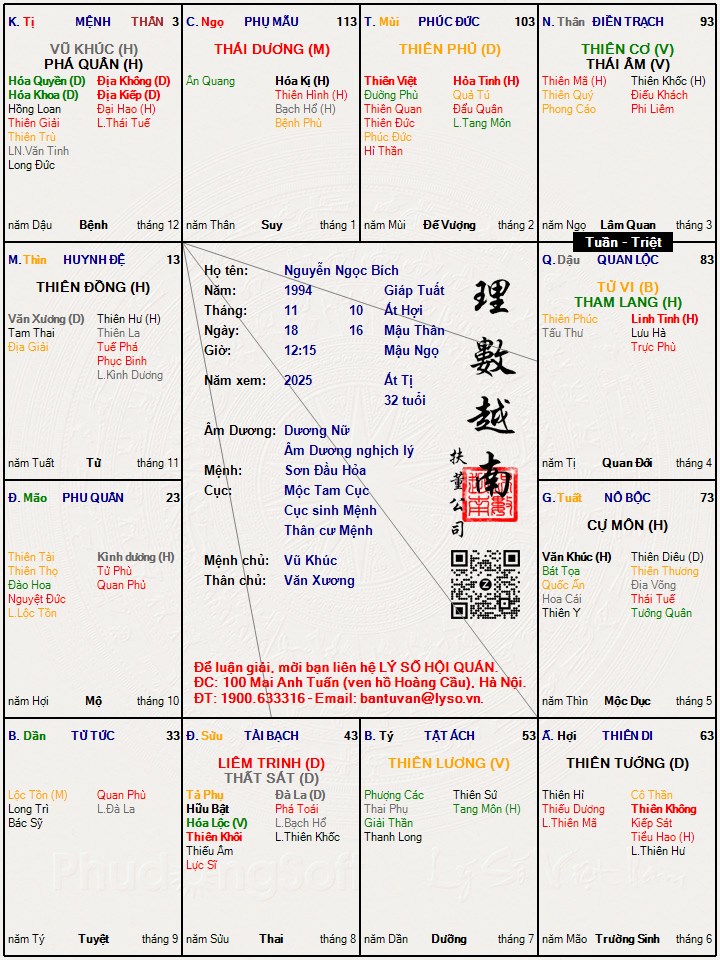 K. Tị MỆNH THÂN 3
VŨ KHÚC (H)
PHÁ QUÂN (H)
Hóa Quyền (D) Địa Không (D)
Hóa Khoa (D) Địa Kiếp (D)
Hồng Loan Đại Hao (H)
Thiên Giải L.Thái Tuế
Thiên Trù
LN.Văn Tinh
Long Đức
năm Dậu Bệnh tháng 12
C. Ngọ PHỤ MẪU 113
THÁI DƯƠNG (M)
Ân Quang Hóa Kị (H)
Thiên Hình (H)
Bạch Hổ (H)
Bệnh Phù
năm Thân Suy tháng 1
T. Mùi PHÚC ĐỨC 103
THIÊN PHỦ (D)
Thiên Việt Hỏa Tinh (H)
Đường Phù Quả Tú
Thiên Quan Đẩu Quân
Thiên Đức L.Tang Môn
Phúc Đức
Hỉ Thần
năm Mùi Đế Vượng tháng 2
N. Thân ĐIỀN TRẠCH 93
THIÊN CƠ (V)
THÁI ÂM (V)
Thiên Mã (H) Thiên Khốc (H)
Thiên Quý Điếu Khách
Phong Cáo Phi Liêm
năm Ngọ Lâm Quan tháng 3
Tuần - Triệt
M. Thìn HUYNH ĐỆ 13
THIÊN ĐỒNG (H)
Văn Xương (D) Thiên Hư (H)
Tam Thai Thiên La
Địa Giải Tuế Phá
Phục Binh
L.Kình Dương
năm Tuất Tử tháng 11
Họ tên: Nguyễn Ngọc Bích
Năm: 1994 Giáp Tuất
Tháng: 11 10 Ất Hợi
Ngày: 18 16 Mậu Thân
Giờ: 12:15 Mậu Ngọ
Năm xem: 2025 Ất Tị
32 tuổi
Âm Dương: Dương Nữ
Âm Dương nghịch lý
Mệnh: Sơn Đầu Hỏa
Cục: Mộc Tam Cục
Cục sinh Mệnh
Thân cư Mệnh
Mệnh chủ: Vũ Khúc
Thân chủ: Văn Xương
理數越南
扶董公司
Để luận giải, mời bạn liên hệ LÝ SỐ HỘI QUÁN.
ĐC: 100 Mai Anh Tuấn (ven hồ Hoàng Cầu), Hà Nội.
ĐT: 1900.633316 - Email: bantuvan@lyso.vn.
Q. Dậu QUAN LỘC 83
TỬ VI (B)
THAM LANG (H)
Thiên Phúc Linh Tinh (H)
Tấu Thư Lưu Hà
Trực Phù
năm Tị Quan Đới tháng 4
Đ. Mão PHU QUÂN 23
Thiên Tài Kình dương (H)
Thiên Thọ Tử Phù
Đào Hoa Quan Phủ
Nguyệt Đức
L.Lộc Tồn
năm Hợi Mộ tháng 10
G. Tuất NÔ BỘC 73
CỰ MÔN (H)
Văn Khúc (H) Thiên Diêu (D)
Bát Tọa Thiên Thương
Quốc Ấn Địa Võng
Hoa Cái Thái Tuế
Thiên Y Tướng Quân
năm Thìn Mộc Dục tháng 5
B. Dần TỬ TỨC 33
Lộc Tồn (M) Quan Phù
Long Trì L.Đà La
Bác Sỹ
năm Tý Tuyệt tháng 9
Đ. Sửu TÀI BẠCH 43
LIÊM TRINH (D)
THẤT SÁT (D)
Tả Phụ Đà La (D)
Hữu Bật Phá Toái
Hóa Lộc (V) L.Bạch Hổ
Thiên Khôi L.Thiên Khốc
Thiếu Âm
Lực Sĩ
năm Sửu Thai tháng 8
B. Tý TẬT ÁCH 53
THIÊN LƯƠNG (V)
Phượng Các Thiên Sứ
Thai Phụ Tang Môn (H)
Giải Thần
Thanh Long
năm Dần Dưỡng tháng 7
Ấ. Hợi THIÊN DI 63
THIÊN TƯỚNG (D)
Thiên Hỉ Cô Thần
Thiếu Dương Thiên Không
L.Thiên Mã Kiếp Sát
Tiểu Hao (H)
L.Thiên Hư
năm Mão Trường Sinh tháng 6